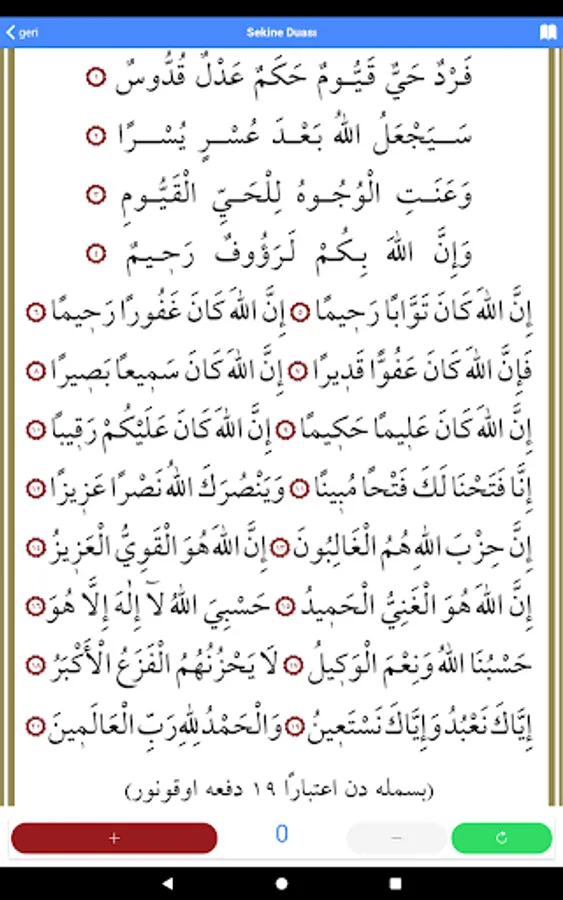 geri Sekine Duası
فَرْدٌ حَيٌّ قَيُّومٌ حَكَمٌ عَدْلٌ قُدُّوسٌ ١
سَيَجْعَلُ اللهُ بَعْدَ عُسْرٍ يُسْرًا ٢
وَعَنَتِ الْوُجُوهُ لِلْحَيِّ الْقَيُّومِ ٣
وَإِنَّ اللهَ بِكُمْ لَرَؤُوفٌ رَحِيمٌ ٤
إِنَّ اللهَ كَانَ تَوَّابًا رَحِيمًا ٥ إِنَّ اللهَ كَانَ غَفُورًا رَحِيمًا ٦
فَإِنَّ اللهَ كَانَ عَفُوًّا قَدِيرًا ٧ إِنَّ اللهَ كَانَ سَمِيعًا بَصِيرًا ٨
إِنَّ اللهَ كَانَ عَلِيمًا حَكِيمًا ٩ إِنَّ اللهَ كَانَ عَلَيْكُمْ رَقِيبًا ١٠
إِنَّا فَتَحْنَا لَكَ فَتْحًا مُبِينًا ١١ وَيَنْصُرَكَ اللهُ نَصْرًا عَزِيزًا ١٢
إِنَّ حِزْبَ اللهِ هُمُ الْغَالِبُونَ ١٣ إِنَّ اللهَ هُوَ الْقَوِيُّ الْعَزِيزُ ١٤
إِنَّ اللهَ هُوَ الْغَنِيُّ الْحَمِيدُ ١٥ حَسْبِيَ اللهُ لَآ إِلٰهَ إِلَّا هُوَ ١٦
حَسْبُنَا اللهُ وَنِعْمَ الْوَكِيلُ ١٧ لَا يَحْزُنُهُمُ الْفَزَعُ الْأَكْبَرُ ١٨
إِيَّاكَ نَعْبُدُ وَإِيَّاكَ نَسْتَعِينُ ١٩ وَالْحَمْدُ لِلهِ رَبِّ الْعَالَمِينَ ٢٠
(بسمله دن اعتبارًا ١٩ دفعه اوقونور)
+ 0 −